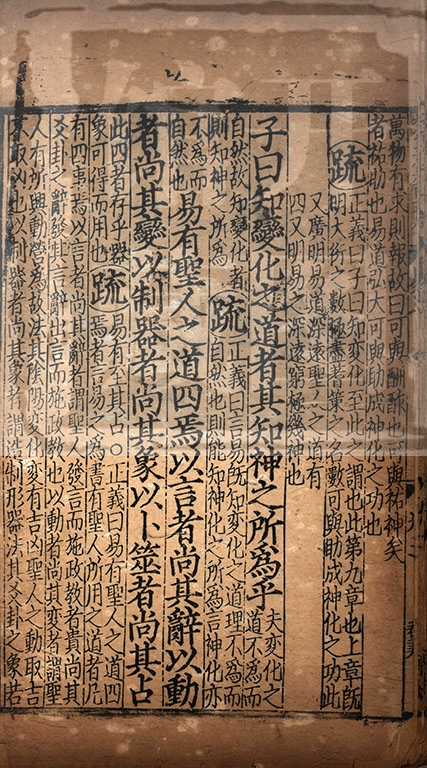 萬物有求則報故曰可與酬酢也可與祐神矣
者祐助也易道弘大可與助成神化之功也
疏
正義曰子曰知変化至此之謂也此第九章也上章旣
明大衍之數極盡蓍策之名數可與助成神化之功此
又廣明易道深遠聖人之道有
四又明易之深遠窮極幾神也
子曰知變化之道者其知神之所爲乎
夫変化之
道不爲而
自然故知變化者
則知神之所爲
疏
正義曰言易旣知変化之道理不爲而
自然也則能知神化之所爲言神化亦
不爲而
自然也
易有聖人之道四焉以言者尚其辭以動
者尚其變以制器者尚其象以卜筮者尚其占
此四者存乎器
象可得而用也
疏
易有至其占○正義曰易有聖人之道四
焉者言易之爲書有聖人所用之道者凡
有四事焉以言者尚其辭者謂聖人發言而施政教者貴尚其
爻卦之辭發其言辭出言而施政教也以動者尚其変者謂聖
人有所興動營爲故法其陰陽変化変有吉凶聖人之動取吉
不取凶也以制器者尚其象者謂造制形器法其爻卦之象若